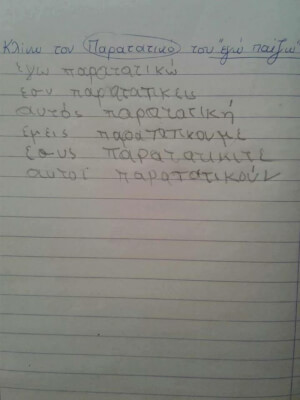 Κλίνω τον Παρατατικό του εγώ παίζω
εγω παρατατικώ
εσυ παρατατικεις
αυτός παρατατική
εμείς παρατατικουμε
εσυς παρατατικιτε
αυτοί παρατατικούν